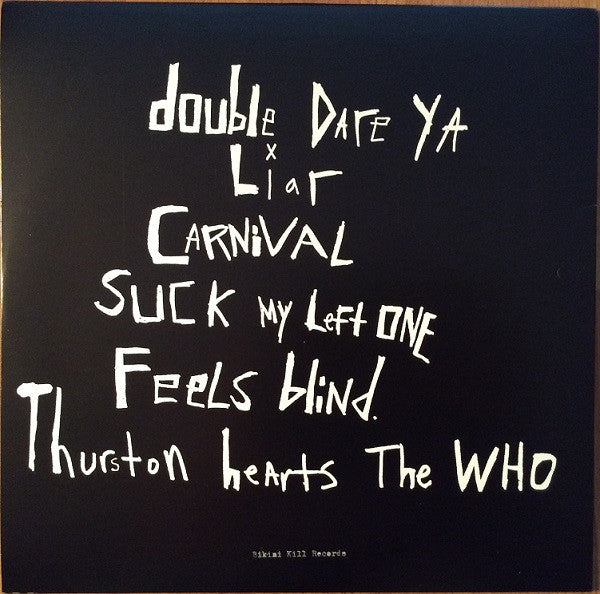 double Dare YA
Liar
CARNiVAL
SUCK My Left ONE
Feels blind.
Thurston hearts The WHO
Bikini Kill Records